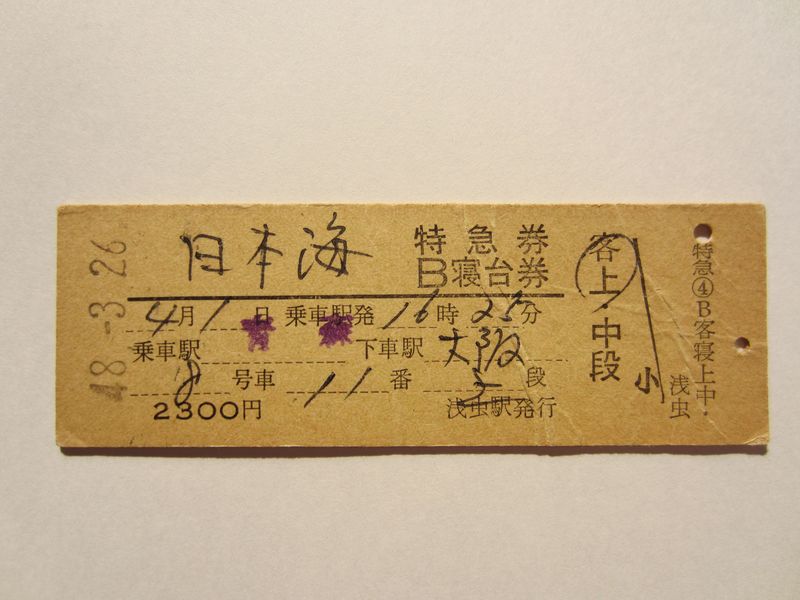 48-3.26
日本海
特急券
B寝台券
4月1日 乗車駅発 16時25分
乗車駅 下車駅 大阪
8号車 11番 段
2300円
浅虫駅発行
客上・中段
小
特急④B客寝上中・
浅虫